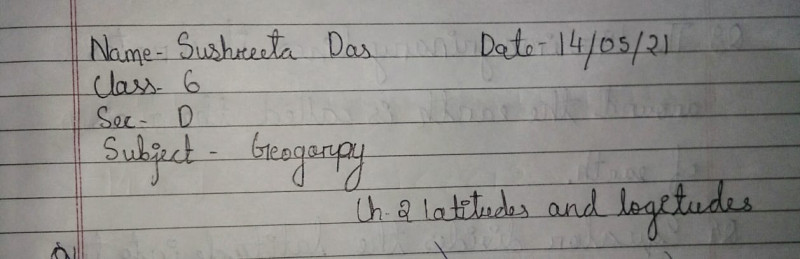 Name- Sushreeta Das Date- 14/05/21
Class- 6
Sec- D
Subject - Geogarpy
Ch-2 latitudes and logetudes